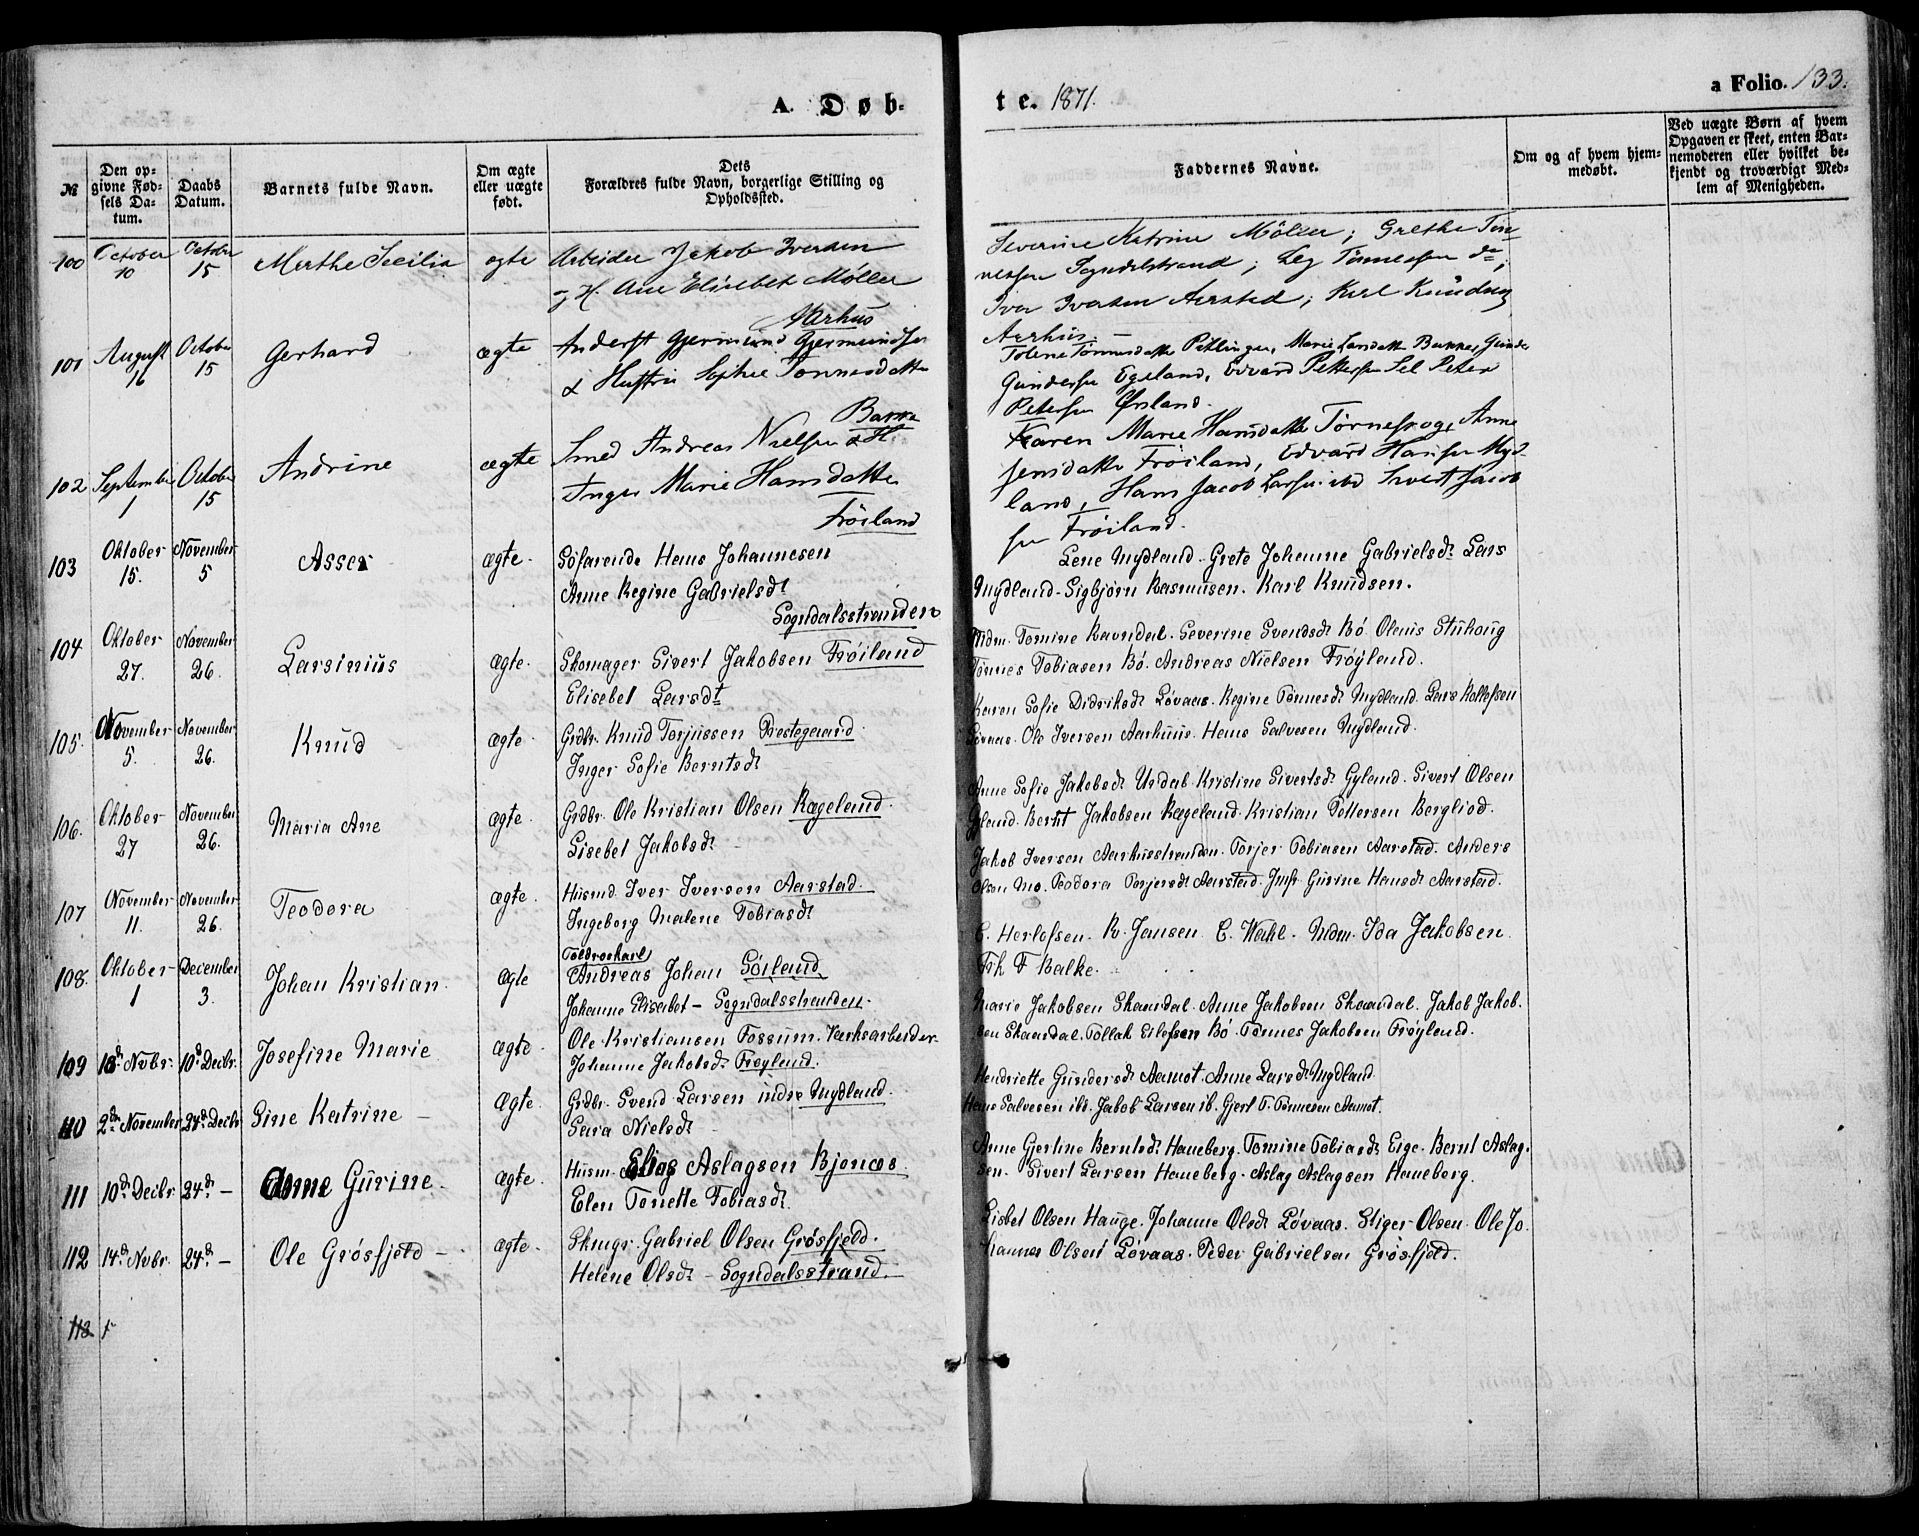 A. Døb-
te. 1871.
a Folio. 133.
№
Den op-
givne Fød-
sels Da-
tum.
Daabs
Datum.
Barnets fulde Navn.
Om ægte
eller uægte
født.
Dets
Forældres fulde Navn, borgerlige Stilling og
Opholdssted.
Faddernes Navne.
Om og af hvem hjem-
medøbt.
Ved uægte Børn af hvem
Opgaven er skeet, enten Bar-
nemoderen eller hvilket be-
kjendt og troværdigt Med-
lem af Menigheden.
100 October 10 October 15 Marthe Secilia ægte Arbeider Jakob Iversen
og H. Ane Elisebet Møller
Aarhus
Severine Katrine Møller; Grethe Tøn-
nessen Sogndalstrand; Leg Tønnessen do;
Iver Iversen Aarstad; Karl Knudsen
Aarhus.
101 August 16 October 15 Gerhard ægte Gjermund Gjermundsen
& Hustru Sophie Tønnesdatter
Bakke
Tolene Tønnesdatter Marie Larsdatter Bakke, Gunder
Gundersen Egeland, Edvard Pettersen Peter
Petersen Ørsland.
102 September 1 October 15 Andrine ægte Smed Andreas Nielsen & H.
Inger Marie Hansdatter
Frøiland
Karen Marie Hansdatter Anne
Jensdatter Frøiland, Edvard Hansen Myd-
land, Hans Jacob Larsen ibd Sivert Jacob
sen Frøiland.
103 Oktober 15. November 5 Asser ægte. Søfarende Hans Johannesen
Anne Regine Gabrielsdt
Sogndalsstranden
Lene Mydland. Grete Johanne Gabrielsdt Lars
Mydland. Sigbjørn Rasmusen. Karl Knudsen.
104 Oktober 27. November 26. Larsinius ægte. Skomager Sivert Jakobsen Frøiland
Elisebet Larsdt
Mdm. Tomine Ravndal. Severine Svendsdt Bø. Olenis Stuhaug
Tønnes Tobiasen Bø. Andreas Nielsen Frøyland.
105. November 5. November 26. Knud ægte. Grdbr. Knud Torjussen Prestegaard.
Inger Sofie Berntsdt
Karen Sofie Didriksdt Løvaas. Regine Tønnesdt Mydland. Lars Rollefsen
Ole Iversen Aarhuus. Hans Salvesen Mydland.
106. Oktober 27 November 26. Maria Ane ægte. Grdbr. Ole Kristian Olsen Rægeland.
Lisebet Jakobsdt
Anne Sofie Jakobsdt Urdal. Kristine Sivertsdt Gyland. Sivert Olsen
Gyland. Bernt Jakobsen Rægeland. Kristian Pettersen Bergliod.
107 November 11. November 26. Teodora ægte. Husmd. Iver Iversen Aarstad.
Ingeborg Malene Tobiasdt
Jakob Iversen Aarhusstranden. Torjer Tobiasen Aarstad. Anders
Olsen Mo. Teodora Torjersdt Aarstad. Jmfr. Gurine Hansdt Aarstad.
108. Oktober 1 December 3. Johan Kristian. ægte Toldroerkarl
Andreas Johan Sørland
Johanne Elisebet - Sogndalsstranden.
C. Herlofsen. R. Jansen. C. Wahl. Mdm. Ida Jakobsen.
Frk F Balke.
109 18d Nvbr. 10d Decbr. Josefine Marie ægte Ole Kristiansen Fossum. Værksarbeider
Johanne Jakobsdt Frøyland.
Marie Jakobsen Skaardal. Anne Jakobsen Skaardal. Jakob Jakob-
sen Skaardal. Tollak Eilefsen Bø. Tønnes Jakobsen Frøyland.
110 2d November 24d Decbr Sine Katrine - ægte. Grdbr. Svend Larsen indre Mydland.
Sara Nielsdt -
Henriette Gundersdt Aamot. Anne Larsdt Mydland
Hans Salvesen ib. Jakob Larsen ib. Gjert T. Tønnesen Aamot.
111 10d Decbr 24d - Anne Gurine. ægte. Husm. Elias Aslagsen Bjønnes.
Elen Tonette Tobiasdt
Anne Gjertine Berntsdt Haneberg. Tomine Tobiasdt Eige. Bernt Aslag-
sen - Sivert Larsen Haneberg. Aslag Aslagsen Haneberg.
112 14d Nvbr. 24d - Ole Grøsfjeld - ægte. Gabriel Olsen Grøsfjeld.
Helene Olsdt - Sogndalsstrand.
Lisbet Olsen Hauge. Johanne Olsdt Løvaas. Stiger Olsen. Ole Jo-
hannes Olsen Løvaas. Peder Gabrielsen Grøsfjeld.
113